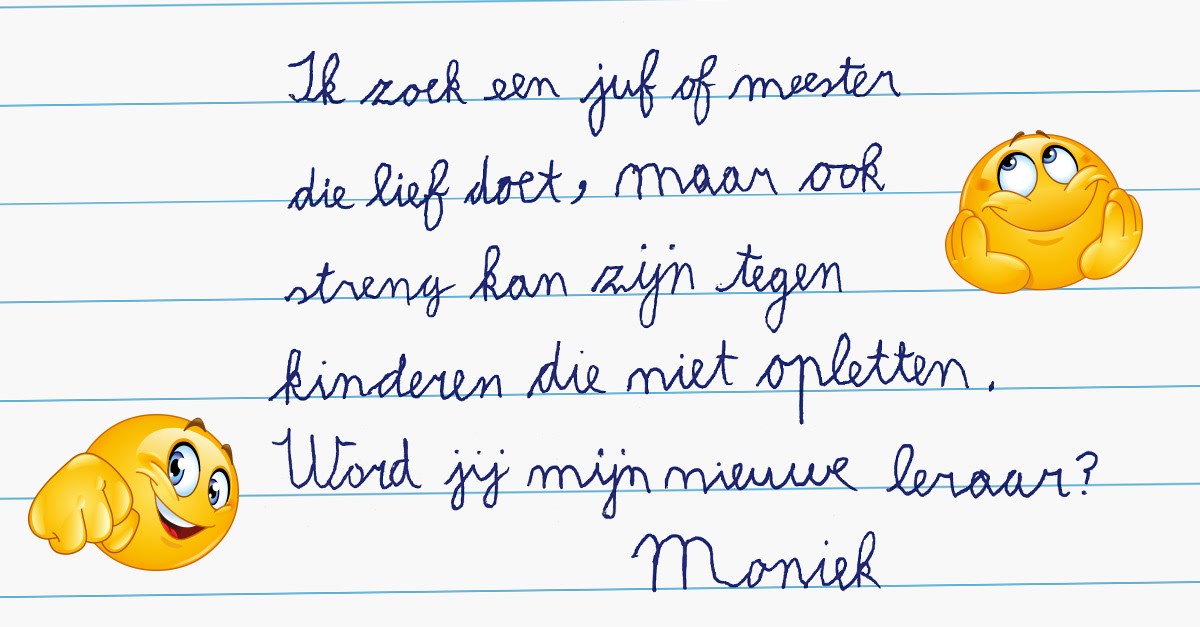 Ik zoek een juf of meester
die lief doet, maar ook
streng kan zijn tegen
kinderen die niet opletten.
Word jij mijn nieuwe leraar?
Moniek